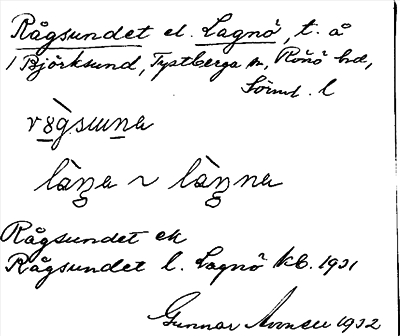 Rågsundet el. Lagnö, t. å
/ Björksund, Tystberga sn, Rönö hd,
Sörml. l
Rågsundet ek
Rågsundet l. Lagnö kb. 1931
Gunnar 1932